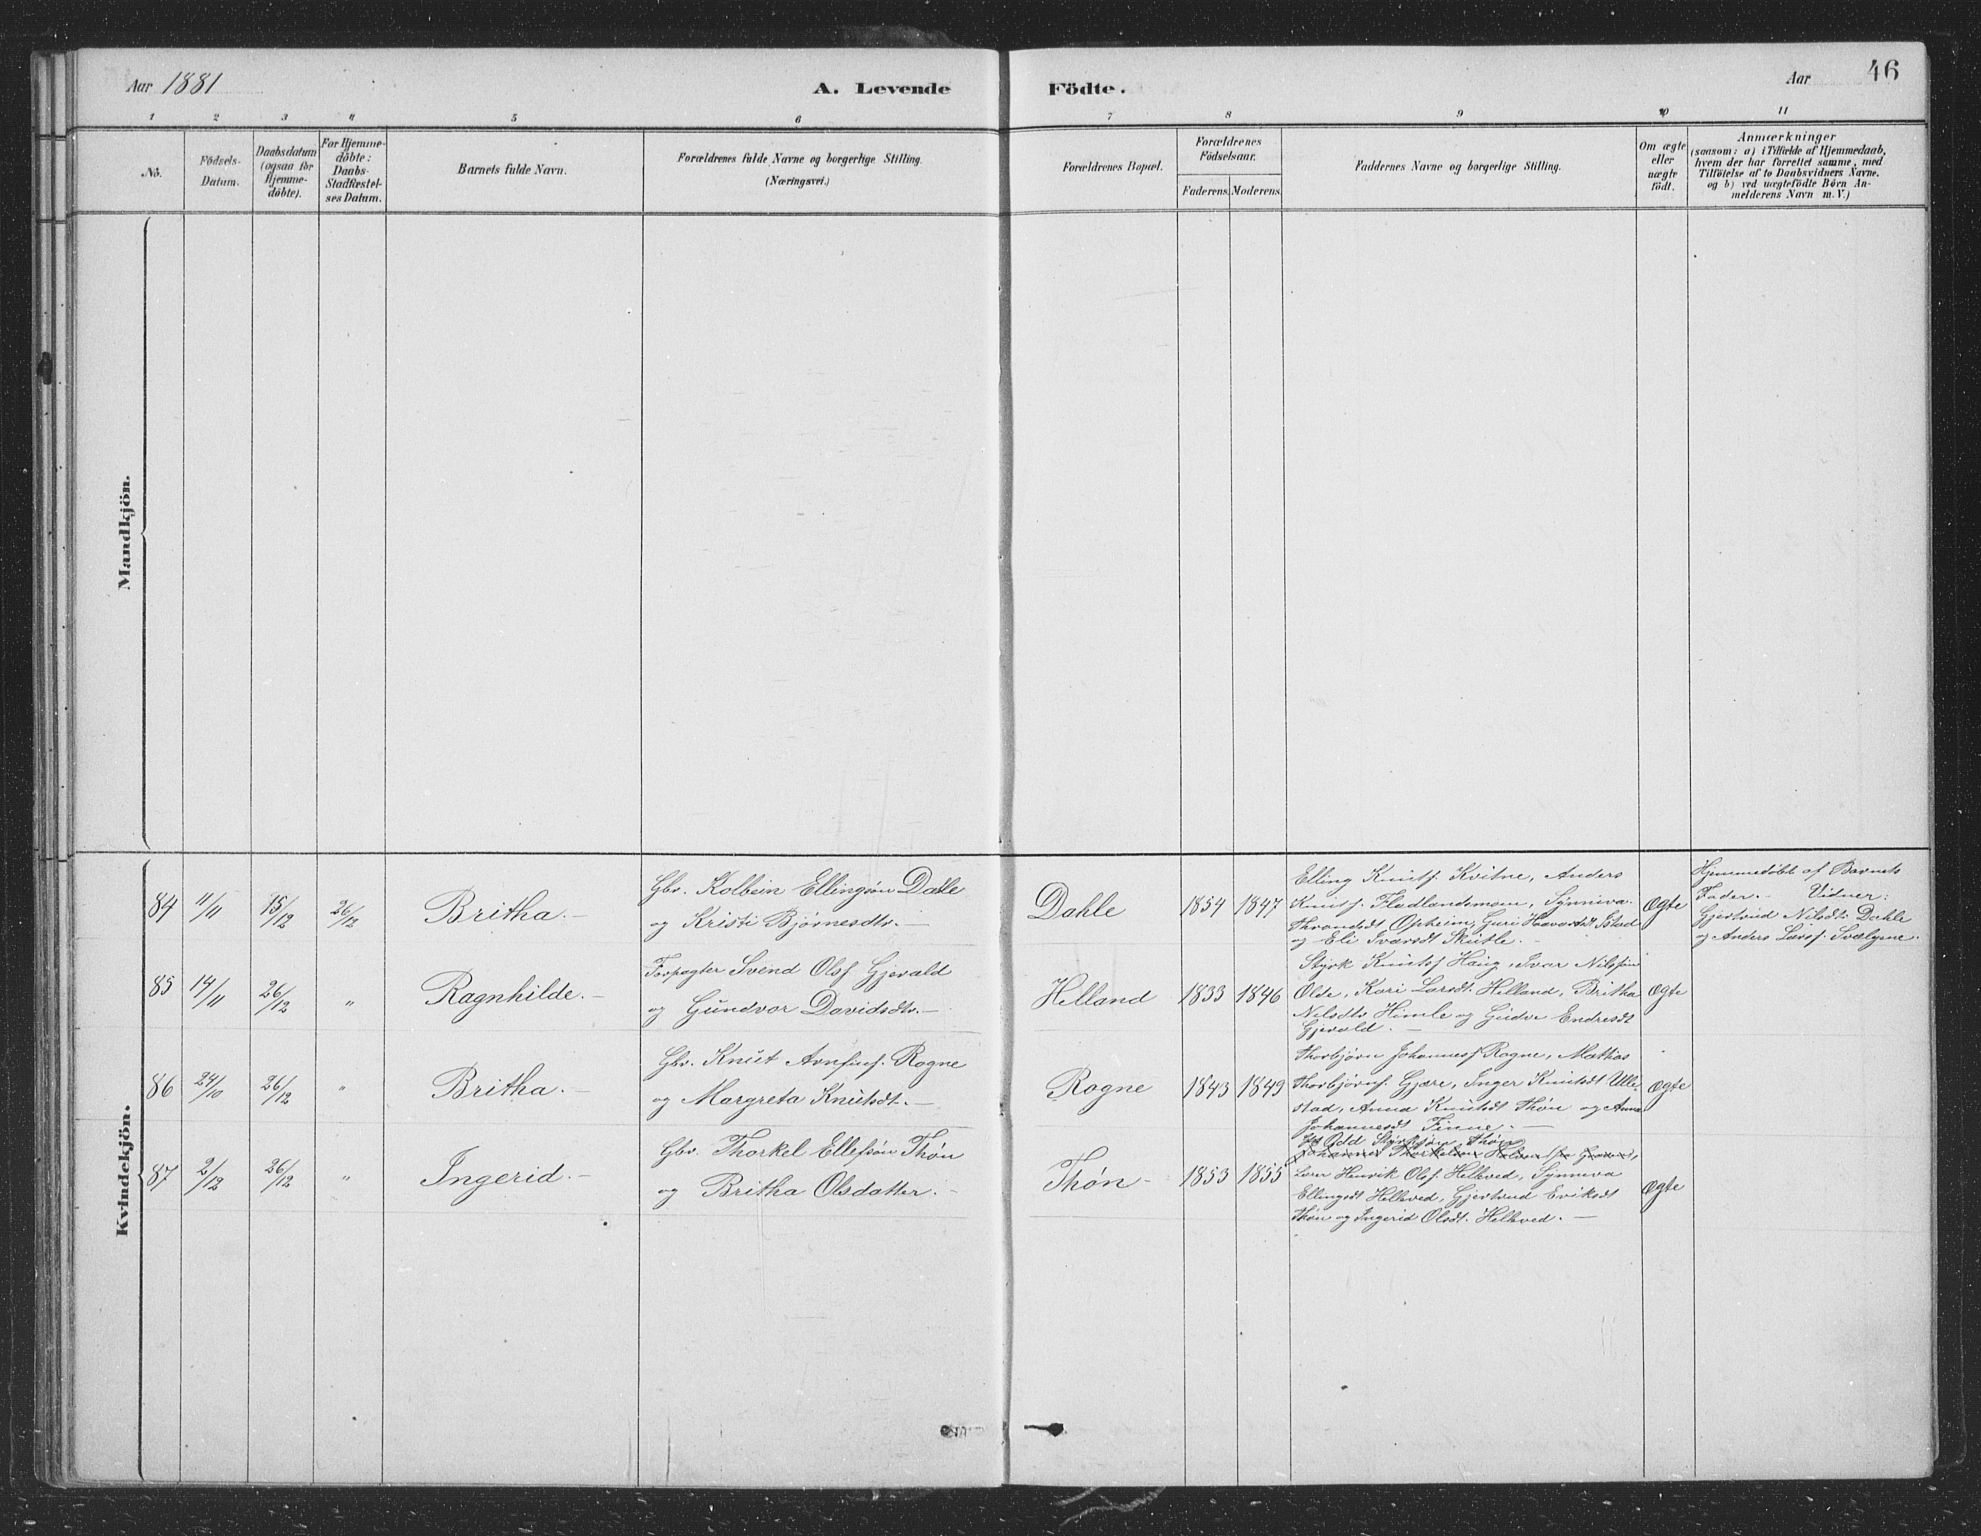 Aar 1881
A. Levende
Födte.
Aar
46
1 2 3 4 5 6 7 8 9 10 11
No.
Födsels-
Datum.
Daabsdatum
(ogsaa för
Hjemme-
döbte).
For Hjemme-
döbte:
Daabs-
Stadfæstel-
ses Datum.
Barnets fulde Navn.
Forældrenes fulde Navne og borgerlige Stilling.
(Næringsvei.)
Forældrenes Bopæl.
Forældrenes
Födselsaar.
Faderens. Moderens.
Faddernes Navne og borgerlige Stilling.
Om ægte
eller
uægte
födt.
Anmærkninger
(saasom: a) i Tilfælde af Hjemmedaab,
hvem der har forrettet samme, med
Tilföielse af to Daabsvidners Navne.
og b) ved uægtefödte Börn An-
melderens Navn m. V.)
Mandkjön.
Kvindekjön.
84
11/11
15/12
26/12
Britha.–
Gbr. Kolbein Ellingsøn Dahle
og Kristi Bjørnesdtr.–
Dahle
1854 1847
Elling Knutsf. Kvitne, Anders
Knutsf. Fladlandsmoen, Synneva
Throndsdt Opheim, Guri Haavarsdt Istad
og Eli Iversdt Skutle.–
Ægte
Hjemmedøbt af Barnets
Fader.– Vidner:
Gjertrud Nilsdt. Dahle
og Anders Larsf.
85
14/11
26/12
"
Ragnhilde.–
Forpagter Svend Olsf Gjerald
og Gundvor Davidsdtr.–
Helland
1833 1846
Styrk Knutsf Haug, Ivar Nilssøn
Olde, Kari Larsdt. Helland, Britha
Nilsdtr Himle og Gudve Endresdt
Gjerald.–
Ægte
86
24/10
26/12
"
Britha.–
Gbr. Knut Arnfinsf. Rogne
og Margreta Knutsdt.–
Rogne
1843 1849
Thorbjørn Johannesf Rogne, Mathias
Thorbjørnsf. Gjære, Inger Knutsdt Ulle-
stad, Anna Knutsdt Thøn og Anna
Johannesdt Finne.–
Ægte
87
2/12
26/12
"
Ingerid.–
Gbr. Thorkel Ellefsøn Thøn
og Britha Olsdatter.–
Thøn–
1853 1855
Odd Styrksøn Thøn
Johannes Thorkelsøn
Lærer Henrik Olsf. Helleved, Synneva
Ellingsdt Helleved, Gjertrud Eriksdt
Thøn og Ingerid Olsdt. Helleved.–
Ægte